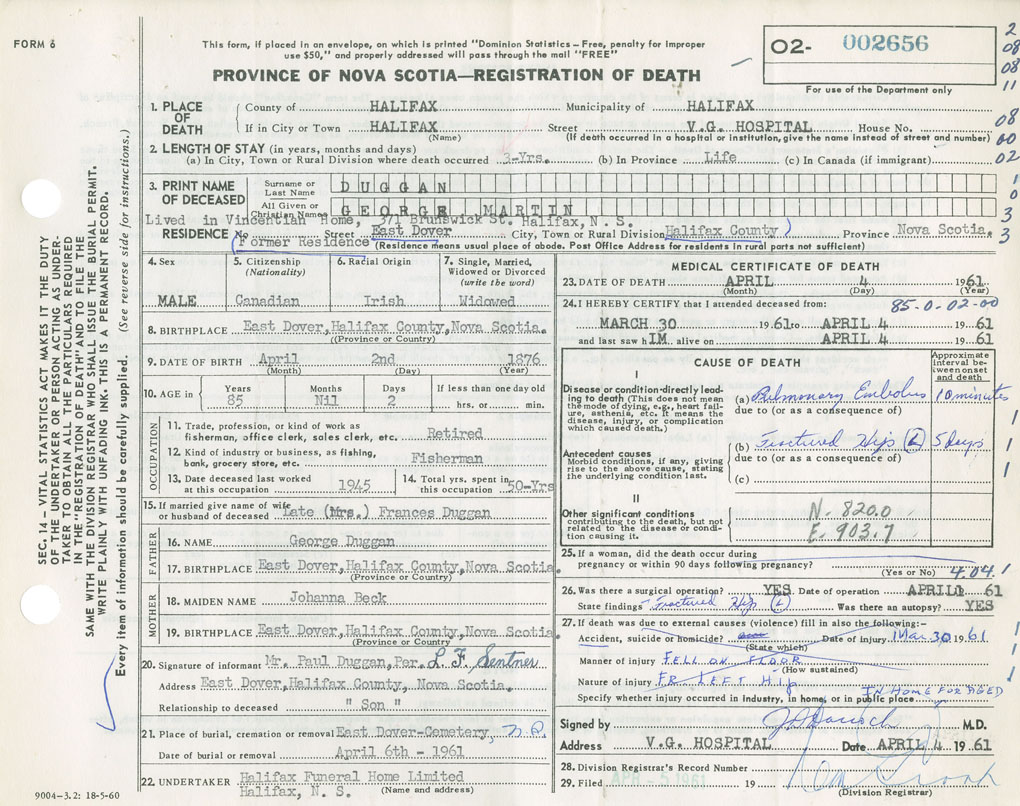 FORM 6
This form, if placed in an envelope, on which is printed "Dominion Statistics – Free, penalty for improper
use $50," and properly addressed will pass through the mail "FREE"
02- 002656
For use of the Department only
PROVINCE OF NOVA SCOTIA—REGISTRATION OF DEATH
2
08
08
11
08
00
02
1
0
3
3
SEC. 14 – VITAL STATISTICS ACT MAKES IT THE DUTY
OF THE UNDERTAKER OR PERSON ACTING AS UNDER-
TAKER TO OBTAIN ALL THE PARTICULARS REQUIRED
IN THE "REGISTRATION OF DEATH" AND TO FILE THE
SAME WITH THE DIVISION REGISTRAR WHO SHALL ISSUE THE BURIAL PERMIT.
WRITE PLAINLY WITH UNFADING INK. THIS IS A PERMANENT RECORD.
Every item of information should be carefully supplied. (See reverse side for instructions.)
1. PLACE OF DEATH
County of HALIFAX Municipality of HALIFAX
If in City or Town HALIFAX Street V.G. HOSPITAL House No.
(Name) (If death occurred in a hospital or institution, give the name instead of street and number)
2. LENGTH OF STAY (in years, months and days)
(a) In City, Town or Rural Division where death occurred 3-Yrs. (b) In Province Life (c) In Canada (if immigrant)
3. PRINT NAME OF DECEASED
Surname or Last Name DUGGAN
All Given or Christian Names GEORGE MARTIN
Lived in Vincentian Home, 371 Brunswick St. Halifax, N. S.
RESIDENCE No Street East Dover City, Town or Rural Division Halifax County ) Province Nova Scotia.
(Former Residence (Residence means usual place of abode. Post Office Address for residents in rural parts not sufficient)
4. Sex
MALE
5. Citizenship (Nationality)
Canadian
6. Racial Origin
Irish
7. Single, Married, Widowed or Divorced (write the word)
Widowed
8. BIRTHPLACE East Dover, Halifax County, Nova Scotia.
(Province or Country)
9. DATE OF BIRTH April 2nd 1876
(Month) (Day) (Year)
10. AGE in Years 85 Months Nil Days 2 If less than one day old hrs. or min.
OCCUPATION
11. Trade, profession, or kind of work as
fisherman, office clerk, sales clerk, etc. Retired
12. Kind of industry or business, as fishing,
bank, grocery store, etc. Fisherman
13. Date deceased last worked
at this occupation 1945
14. Total yrs. spent in
this occupation 50-Yrs
15. If married give name of wife
or husband of deceased Late (Mrs.) Frances Duggan
FATHER
16. NAME George Duggan
17. BIRTHPLACE East Dover, Halifax County, Nova Scotia.
(Province or Country)
MOTHER
18. MAIDEN NAME Johanna Beck
19. BIRTHPLACE East Dover, Halifax County, Nova Scotia.
(Province or Country)
20. Signature of informant Mr. Paul Duggan, Per. L. F. Sentner
Address East Dover, Halifax County, Nova Scotia.
Relationship to deceased " Son "
21. Place of burial, cremation or removal East Dover-Cemetery, N.S.
Date of burial or removal April 6th - 1961
22. UNDERTAKER Halifax Funeral Home Limited
Halifax, N. S. (Name and address)
9004-3.2: 18-5-60
MEDICAL CERTIFICATE OF DEATH
23. DATE OF DEATH APRIL 4 1961
(Month) (Day) (Year)
24. I HEREBY CERTIFY that I attended deceased from: 85-0-02-00
MARCH 30 1961 to APRIL 4 1961
and last saw hIM. alive on APRIL 4 1961
CAUSE OF DEATH
Approximate interval between onset and death
I
Disease or condition directly lead-
ing to death (This does not mean
the mode of dying, e.g., heart fail-
ure, asthenia, etc. It means the
disease, injury, or complication
which caused death.)
(a) Pulmonary Embolus 10 minutes
due to (or as a consequence of)
Antecedent causes
Morbid conditions, if any, giving
rise to the above cause, stating
the underlying condition last.
(b) Fractured Hip (L) 5 days
due to (or as a consequence of)
(c)
II
Other significant conditions
contributing to the death, but not
related to the disease or condi-
tion causing it.
N. 820.0
E. 903.7
25. If a woman, did the death occur during
pregnancy or within 90 days following pregnancy?
(Yes or No) 4.04.1
26. Was there a surgical operation? YES Date of operation APRIL1 1961
State findings Fractured Hip (L) Was there an autopsy? YES
27. If death was due to external causes (violence) fill in also the following:-
Accident, suicide or homicide? Date of injury Mar 30 1961
(State which)
Manner of injury FELL ON FLOOR
(How sustained)
Nature of injury FR LEFT HIP
Specify whether injury occurred in industry, in home, or in public place IN HOME FOR AGED
Signed by M.D.
Address V.G. HOSPITAL Date APRIL 4 1961
28. Division Registrar's Record Number
29. Filed APR - 5 1961 19
(Division Registrar)